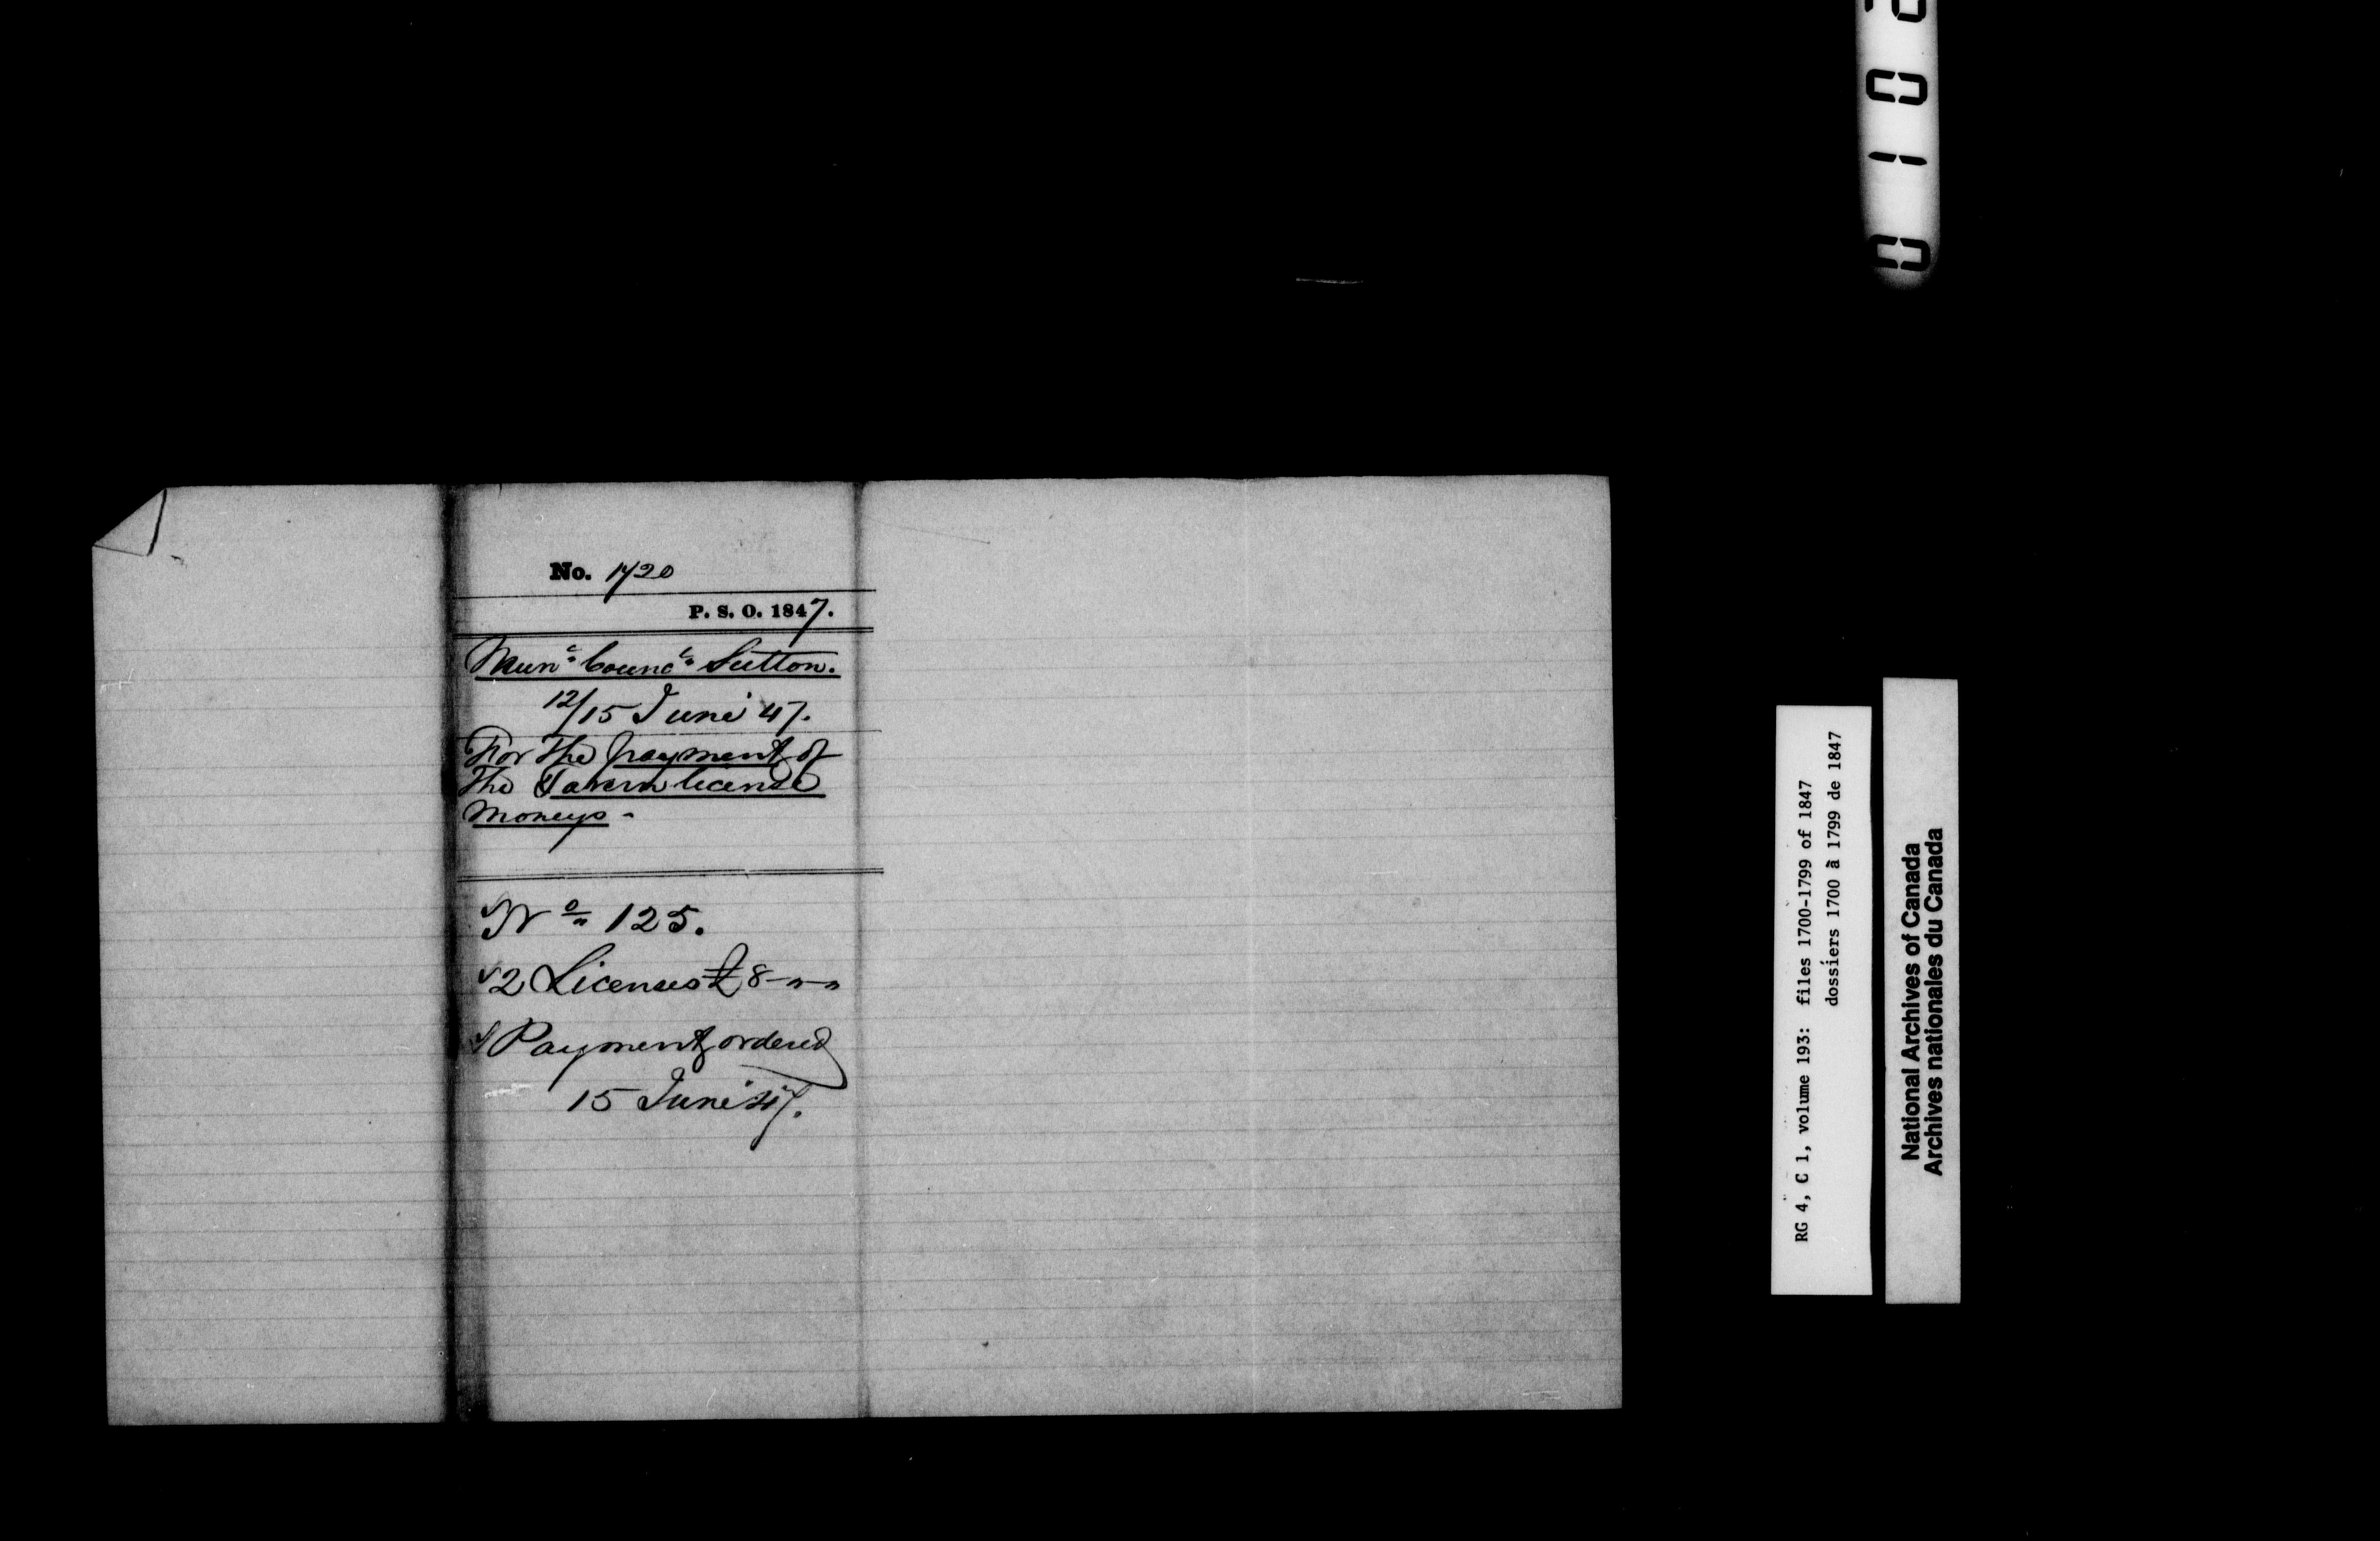 No. 1720
P. S. O. 1847.
Mun.l Counc.l Sutton.
12/15 June 47.
For the payment of
the Tavern license
moneys -
No 125.
2 Licenses £8-"-"
Payment ordered
15 June 47.
RG 4, C 1, volume 193: files 1700-1799 of 1847
dossiers 1700 à 1799 de 1847
National Archives of Canada
Archives nationales du Canada
0 1 0 2